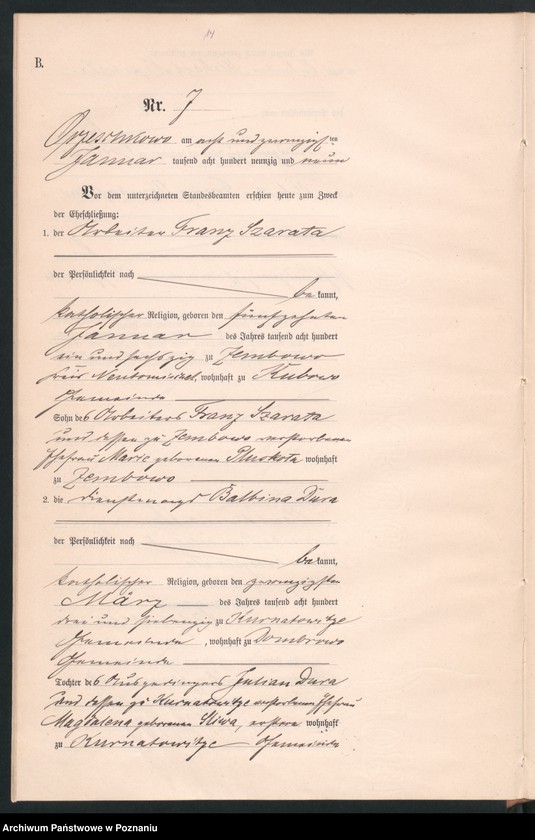 B.
Nr. 7
am acht und zwanzigsten
Januar tausend acht hundert neunzig und neun
Vor dem unterzeichneten Standesbeamten erschien heute zum Zweck
der Eheschließung:
1. der Arbeiter Franz Szarata
der Persönlichkeit nach
be kannt,
katholischer Religion, geboren den fünfzehnten
Januar des Jahres tausend acht hundert
ein und sechszig zu Zembowo
Kreis Neutomischel, wohnhaft zu Kubowo
Gemeinde
Sohn des Arbeiters Franz Szarata
und dessen zu Zembowo verstorbenen
Ehefrau Marie geborenen Pluskota wohnhaft
zu Zembowo
2. die Dienstmagd Balbina Dura
der Persönlichkeit nach
be kannt,
katholischer Religion, geboren den zwanzigsten
März des Jahres tausend acht hundert
drei und siebenzig zu Kurnatowitze
Gemeinde, wohnhaft zu Dombrowo
Gemeinde
Tochter des Ausgedingers Julian Dura
und dessen zu Kurnatowitze verstorbenen Ehefrau
Magdalena geborenen Sliwa, ersterer wohnhaft
zu Kurnatowitze Gemeinde
Archiwum Państwowe w Poznaniu